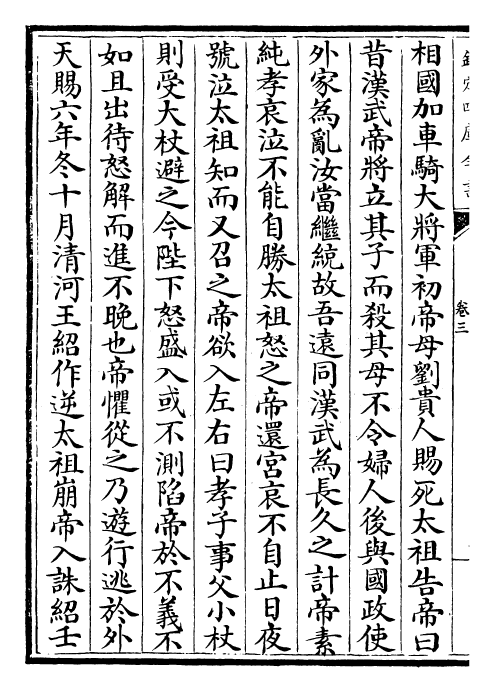 欽定四庫全書
卷三
相國加車騎大將軍初帝母劉貴人賜死太祖告帝曰
昔漢武帝將立其子而殺其母不令婦人後與國政使
外家為亂汝當繼統故吾遠同漢武為長久之計帝素
純孝哀泣不能自勝太祖怒之帝還宮哀不自止日夜
號泣太祖知而又召之帝欲入左右曰孝子事父小杖
則受大杖避之今陛下怒盛入或不測陷帝於不義不
如且出待怒解而進不晚也帝懼從之乃遊行逃於外
天賜六年冬十月清河王紹作逆太祖崩帝入誅紹壬